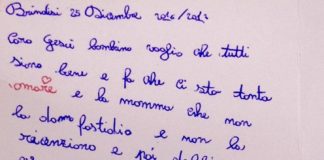 Brindisi 25 Dicembre 2016/2017
Caro Gesù bambino voglio che tutti
siano bene e fa che ci sta tanta
amore e la momma che non
la danno fastidio e non la